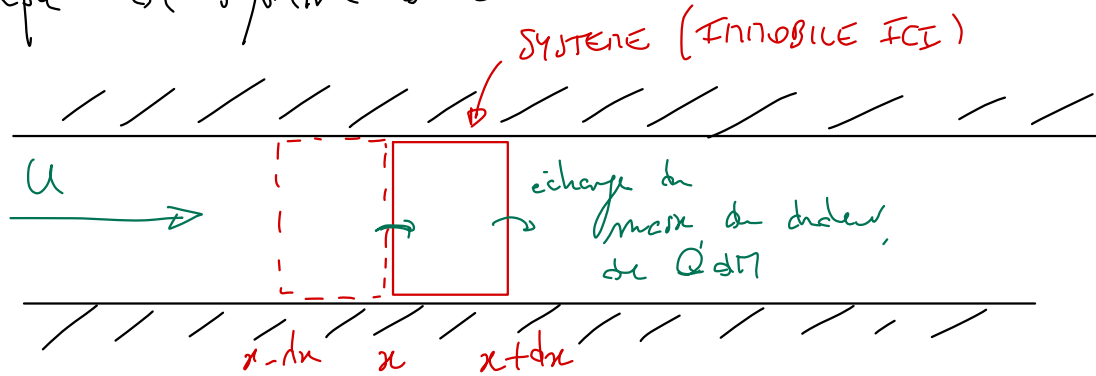 SYSTEME (IMMOBILE ICI)
U
échange de
masse de chaleur,
de QdM
x-dx x x+dx